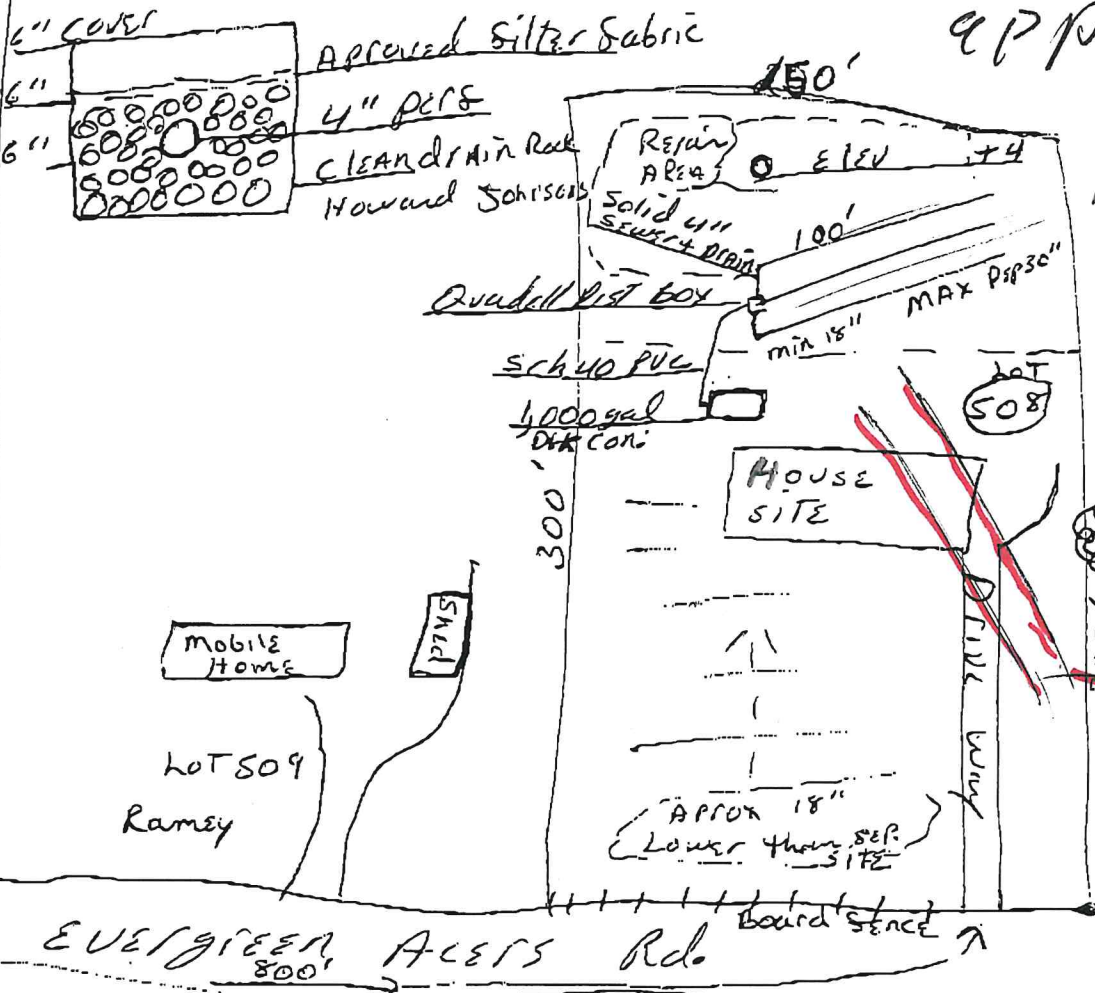 6" COVER
6"
6"
Aproved Silter Sabric
4" perf
CLEAN drain Rock
Howard Johnsons
150'
Repair
AREA
ELEV +4
Solid 4"
Sewer & Drain
100'
Quadell Dist box
MAX Deep 30"
min 18"
sch 40 PVC
1,000 gal
LOT
508
HOUSE
SITE
300'
Shed
Mobile
Home
LOT 509
Ramey
Drive Way
Aprox 18"
Lower than Sep.
SITE
Board Sence
Evergreen Acers Rd.
800'